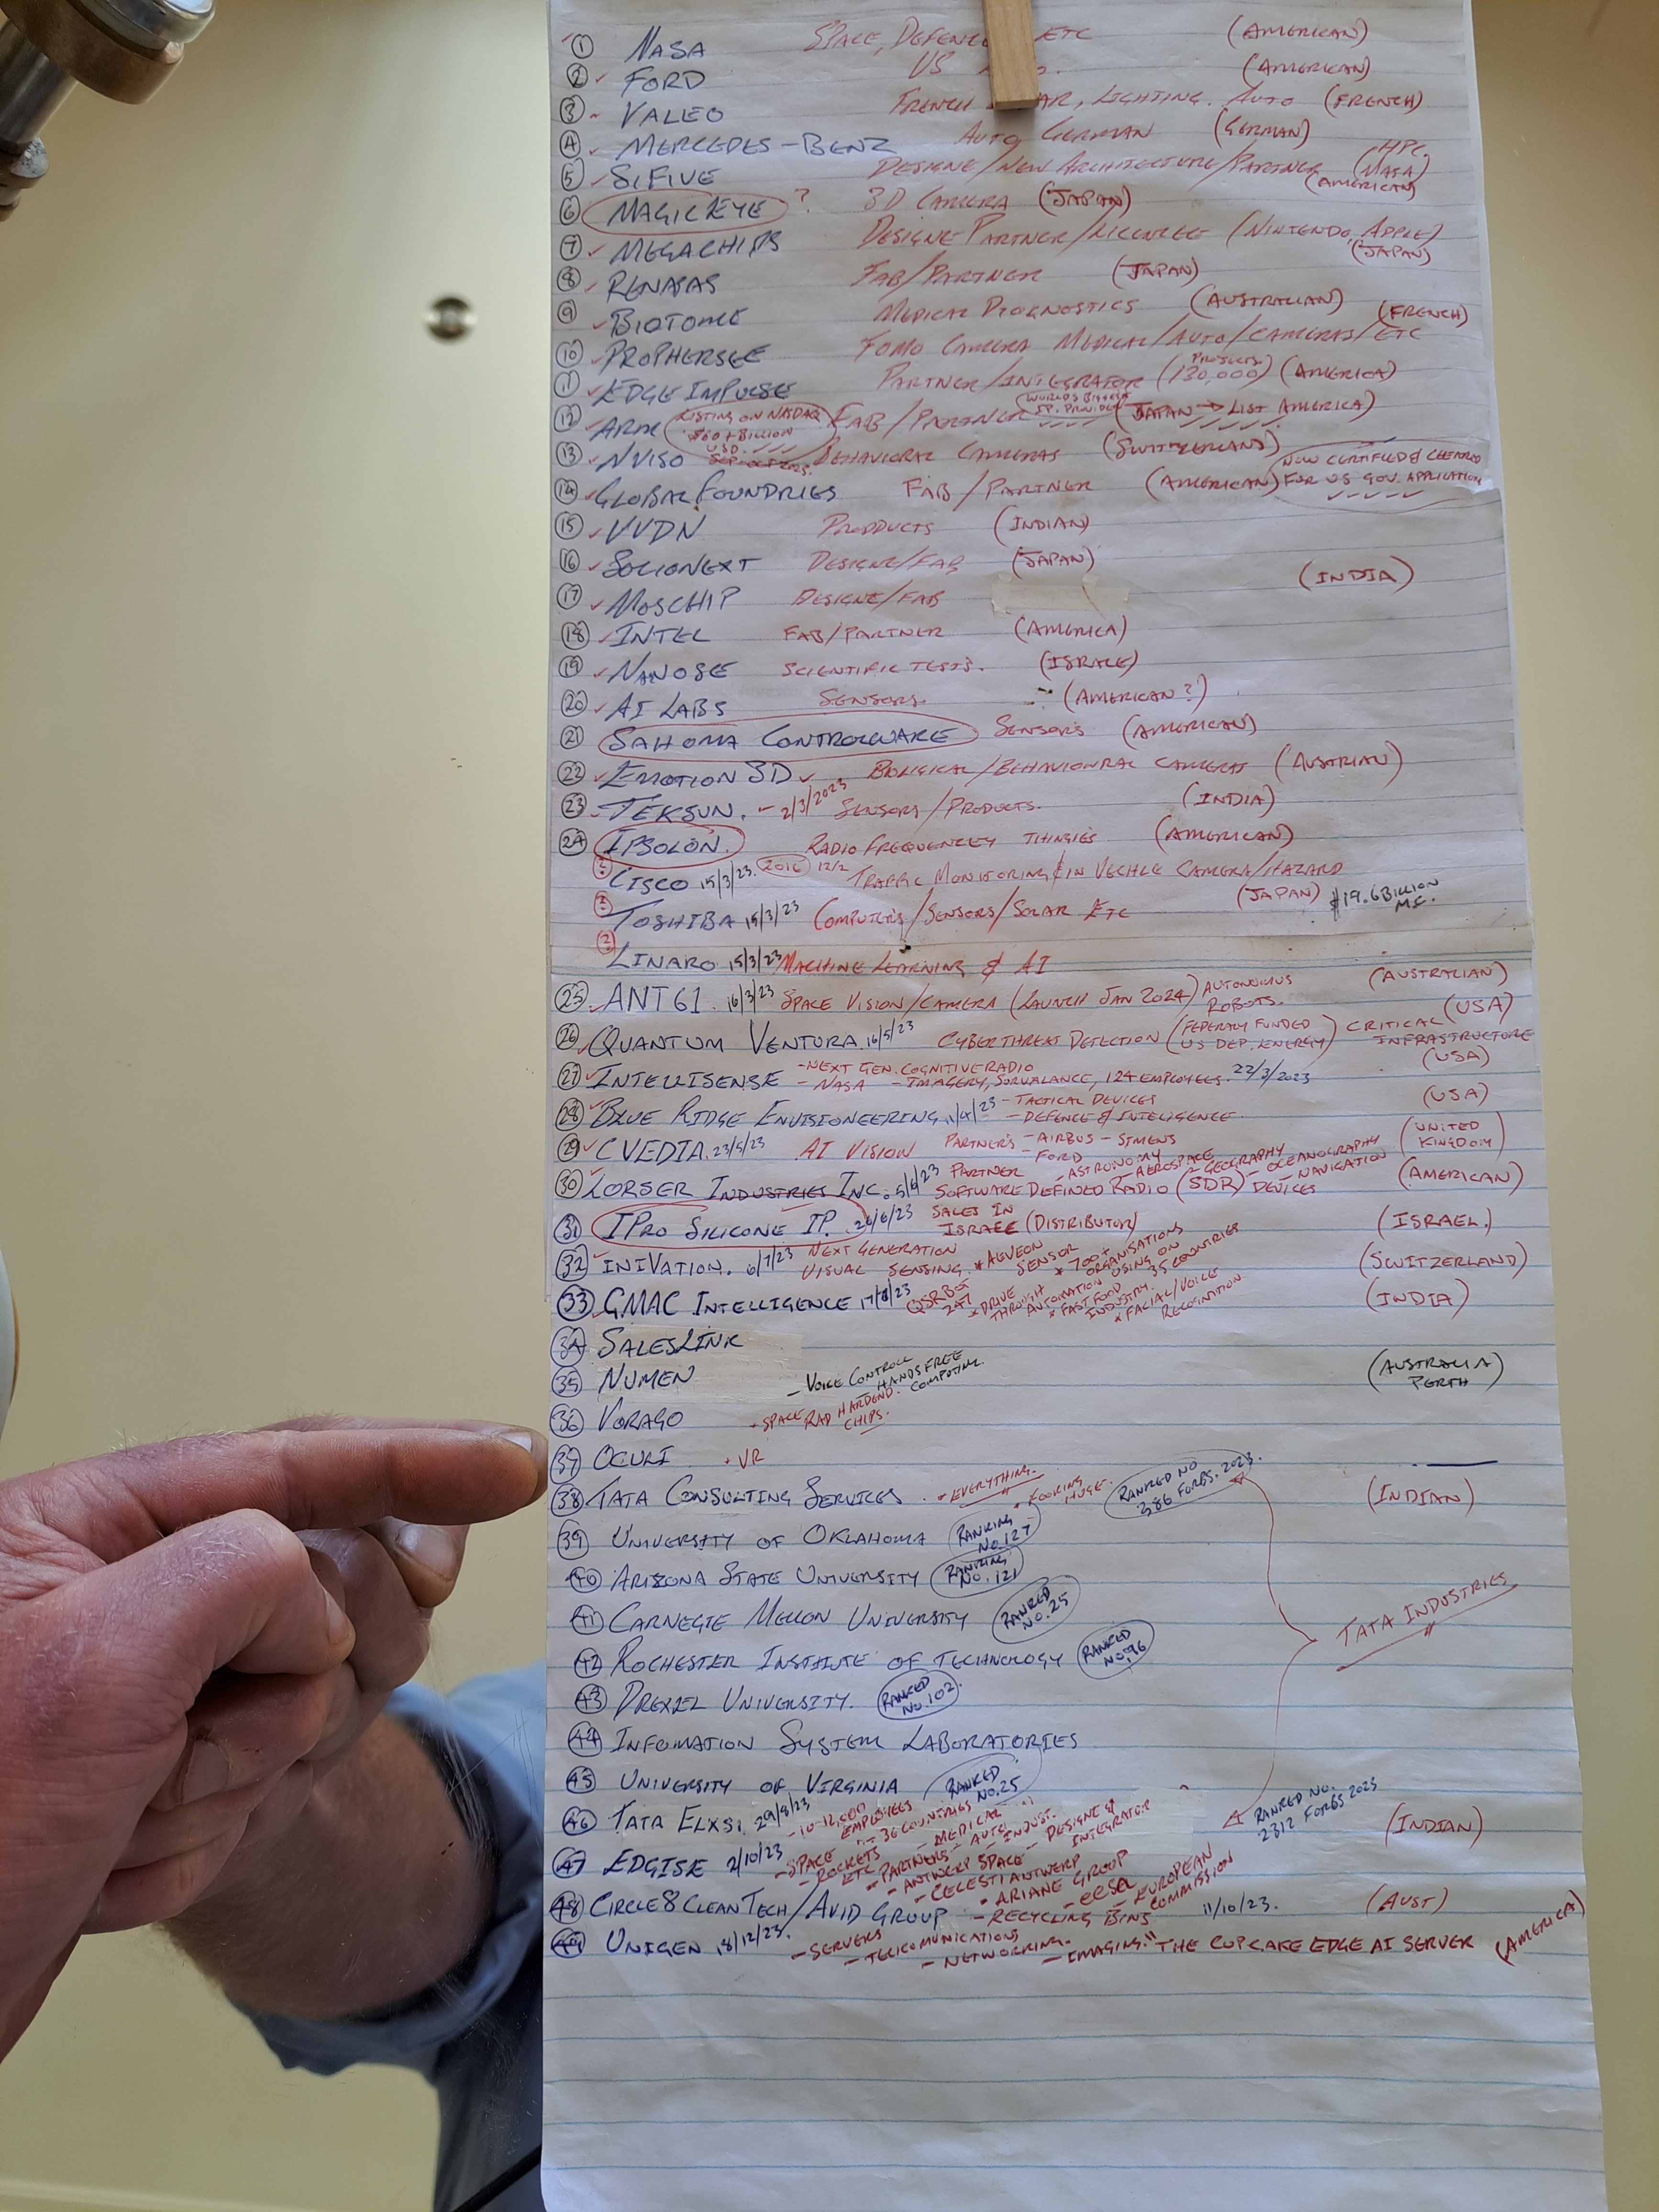 1 NASA SPACE, DEFENCE ETC (AMERICAN)
2 FORD US (AMERICAN)
3 VALEO FRENCH LIGHTING. AUTO (FRENCH)
4 MERCEDES-BENZ AUTO GERMAN (GERMAN)
5 SIFIVE DESIGNE/NEW ARCHITECTURE/PARTNER HPC. (NASA) (AMERICAN)
6 MAGICEYE ? 3D CAMERA (JAPAN)
7 MEGACHIPS DESIGNE PARTNER/LICENCEE (NINTENDO, APPLE) (JAPAN)
8 RENASAS FAB/PARTNER (JAPAN)
9 BIOTOME MEDICAL DIOGNOSTICS (AUSTRALIAN)
10 PROPHERSEE FOMO CAMERA MEDICAL/AUTO/CAMERAS/ETC (FRENCH)
11 EDGE IMPULSE PARTNER/INTEGRATOR (PROJECTS 130,000) (AMERICA)
12 ARM LISTING ON NASDAQ $60+BILLION USD. FAB/PARTNER WORLDS BIGGEST IP. PROVIDER (JAPAN → LIST AMERICA)
13 NVISO BEHAVIORAL CAMERAS (SWITZERLAND)
14 GLOBAL FOUNDRIES FAB/PARTNER (AMERICAN) NOW CERTIFIED & CLEARED FOR US GOV. APPLICATION
15 VVDN PRODUCTS (INDIAN)
16 SOCIONEXT DESIGNE/FAB (JAPAN)
17 MOSCHIP DESIGNE/FAB (INDIA)
18 INTEL FAB/PARTNER (AMERICA)
19 NANOSE SCIENTIFIC TESTS. (ISRALE)
20 AI LABS SENSORS (AMERICAN?)
21 SAHOMA CONTROLWARE SENSORS (AMERICAN)
22 EMOTION 3D BIOLIGICAL/BEHAVIONRAL CAMERAS (AUSTRIAN)
23 TEKSUN. - 2/3/2023 SENSORS/PRODUCTS. (INDIA)
24 IPSOLON. RADIO FREQUENCEY THINGIES (AMERICAN)
? CISCO 15/3/23. 2016 12/2 TRAFFIC MONITORING & IN VECHLE CAMERA/HAZARD
? TOSHIBA 15/3/23 COMPUTERS/SENSORS/SOLAR ETC (JAPAN) $19.6BILLION M.C.
? LINARO 15/3/23 MACHINE LEARNING & AI
25 ANT61. 16/3/23 SPACE VISION/CAMERA (LAUNCH JAN 2024) AUTONOMUS ROBOTS. (AUSTRALIAN)
26 QUANTUM VENTURA. 16/5/23 CYBERTHREAT DETECTION (FEDERALY FUNDED US DEP. ENERGY) CRITICAL INFRASTRUCTURE (USA)
27 INTELLISENSE - NEXT GEN. COGNITIVE RADIO - NASA - IMAGERY, SURVALANCE, 124 EMPLOYEES. 22/3/2023 (USA)
28 BLUE RIDGE ENVISIONEERING 1/4/23 - TACTICAL DEVICES - DEFENCE & INTELIGENCE. (USA)
29 CVEDIA. 23/5/23 AI VISION PARTNER'S - AIRBUS - SIMENS - FORD (UNITED KINGDOM)
30 LORSER INDUSTRIES INC. 5/6/23 PARTNER - ASTRONOMY - AEROSPACE - GEOGRAPHY - OCEANOGRAPHY - NAVIGATION SOFTWARE DEFINED RADIO (SDR) DEVICES (AMERICAN)
31 IPRO SILICONE IP. 26/6/23 SALES IN ISRAEL (DISTRIBUTOR) (ISRAEL.)
32 INIVATION. 6/7/23 NEXT GENERATION VISUAL SENSING. * AEVEON SENSOR * 700+ ORGANISATIONS USING ON 35 COUNTRIES (SWITZERLAND)
33 GMAC INTELLIGENCE 17/8/23 QSRBOS 247 * DRIVE THROUGH AUTOMATION * FAST FOOD INDUSTRY. * FACIAL/VOICE RECOGNITION. (INDIA)
34 SALESLINK
35 NUMEN - VOICE CONTROLL HANDSFREE COMPUTING. (AUSTRALIA) PERTH
36 VORAGO • SPACE RAD HARDEND. CHIPS.
37 OCULI • VR
38 TATA CONSULTING SERVICES. • EVERYTHING. • FOORING HUGE. RANKED NO 386 FORBS. 2023. (INDIAN)
39 UNIVERSITY OF OKLAHOMA RANKING NO. 127
40 ARIZONA STATE UNIVERSITY RANKING NO. 121
41 CARNEGIE MELLON UNIVERSITY RANKED NO. 25
TATA INDUSTRIES
42 ROCHESTER INSTITUTE OF TECHNOLOGY RANKED NO. 96
43 DREXEL UNIVERSITY. RANKED NO. 102.
44 INFOMATION SYSTEM LABORATORIES
45 UNIVERSITY OF VIRGINIA RANKED NO. 25
46 TATA ELXSI 29/8/23 - 10-12,000 EMPLOYEES - 36 COUNTRIES - MEDICAL - AUTO - INDUST. - DESIGNE & INTEGRATOR RANKED NO. 2312 FORBS 2023 (INDIAN)
47 EDGISE 2/10/23 - SPACE - ROCKETS ETC - PARTNERS - ANTWERP SPACE - CELESTIANTWERP - ARIANE GROUP - EUROPEAN COMMISSION
48 CIRCLE8 CLEANTECH/AVID GROUP - RECYCLING BINS 11/10/23. (AUST)
49 UNIGEN 18/12/23. - SERVERS - TELICOMUNICATIONS - NETWORKING. - IMAGING. "THE CUPCAKE EDGE AI SERVER (AMERICA)